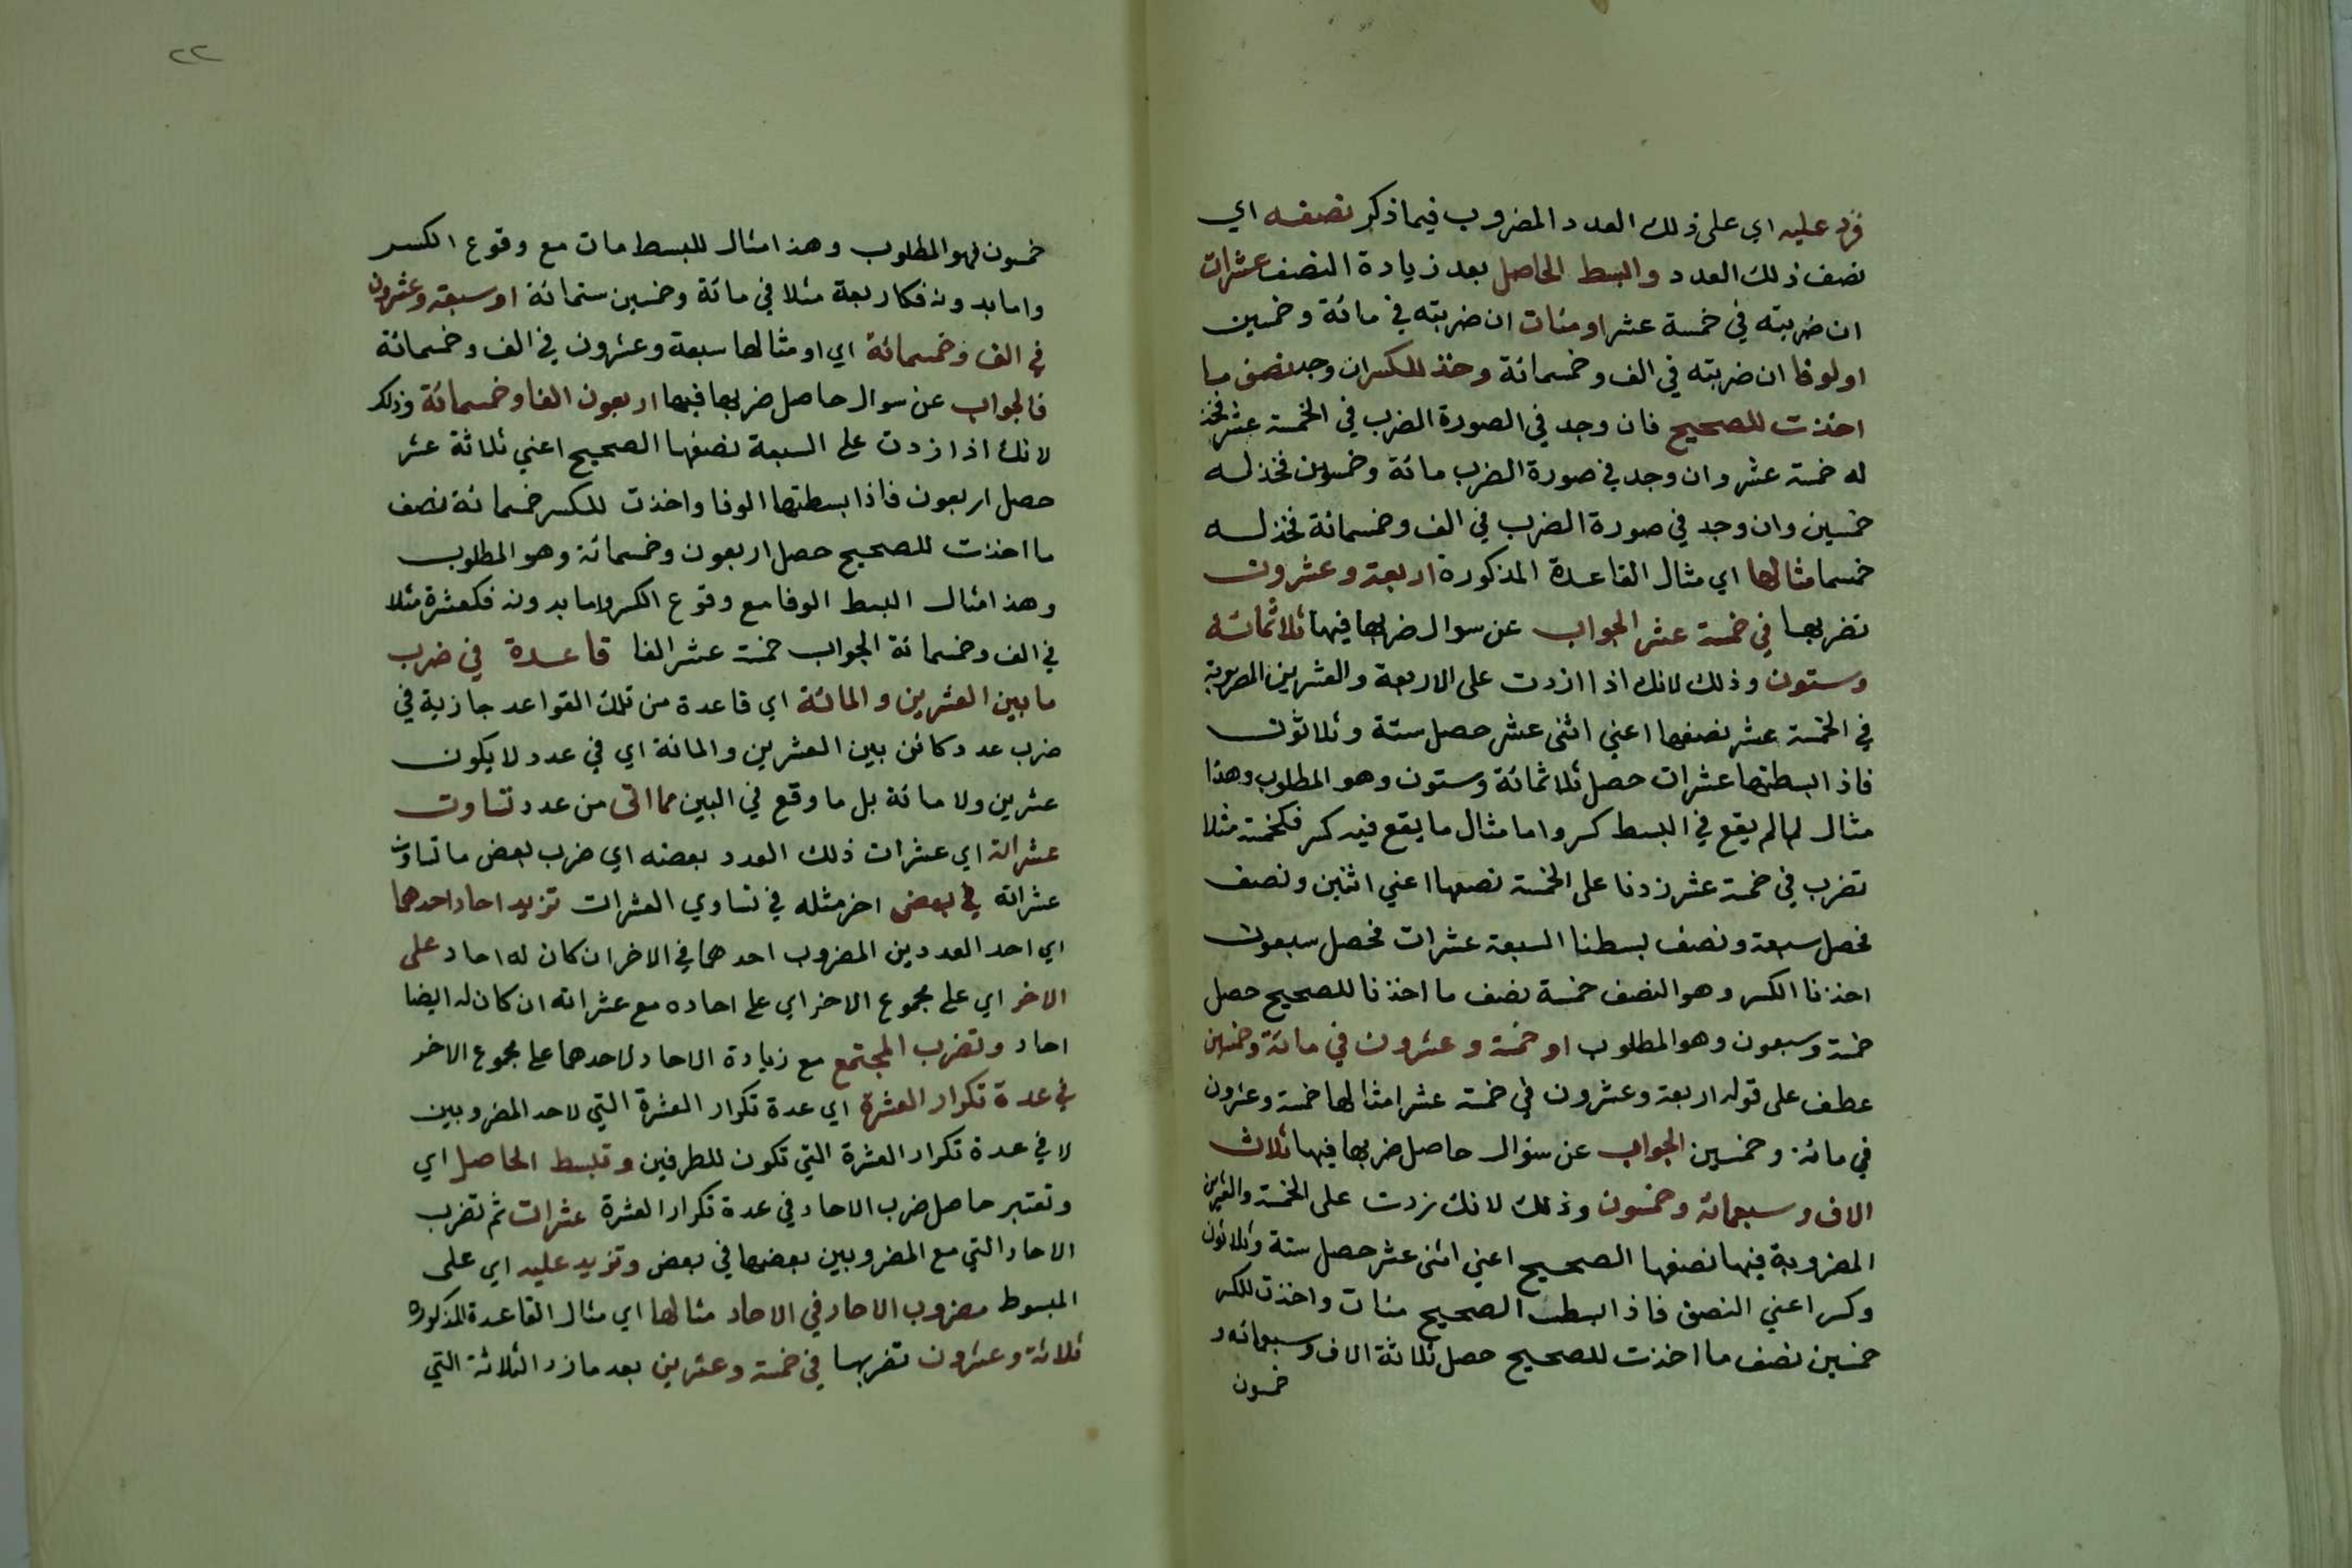 فزد عليه اي على ذلك العدد المضروب فيما ذكر نصفه اي
نصف ذلك العدد وابسط الحاصل بعد زيادة النصف عشرات
ان ضربته في خمسة عشر او مئات ان ضربته في مائة وخمسين
او لوفا ان ضربته في الف وخمسمائة وخذ للكسران وجد نصف ما
اخذت للصحيح فان وجد في الصورة الضرب في الخمسة عشر فخذ
له خمسة عشر وان وجد في صورة الضرب مائة وخمسون فخذ له
خمسين وان وجد في صورة الضرب في الف وخمسمائة فخذ له
خمسما مثالها اي مثال القاعدة المذكورة اربعة وعشرون
تضربها في خمسة عشر الجواب عن سوال ضربها فيها ثلاثمائة
وستون وذلك لانك اذا ازدت على الاربعة والعشرين المضروبة
في الخمسة عشر نصفها اعني اثنى عشر حصل ستة وثلاثون
فاذا بسطتها عشرات حصل ثلاثمائة وستون وهو المطلوب وهذا
مثال لما لم يقع في البسط كسر واما مثال ما يقع فيه كسر فكخمسة مثلا
تضرب في خمسة عشر زدنا على الخمسة نصفها اعني اثنين ونصف
فحصل سبعة ونصف بسطنا السبعة عشرات فحصل سبعون
اخذنا الكسر وهو النصف خمسة نصف ما اخذنا للصحيح حصل
خمسة وسبعون وهو المطلوب او خمسة وعشرون في مائة وخمسين
عطف على قوله اربعة وعشرون في خمسة عشر امثالها خمسة وعشرون
في مائة وخمسين الجواب عن سؤال حاصل ضربها فيها ثلاث
الاف وسبعمائة وخمسون وذلك لانك زدت على الخمسة والعشرين
المضروبة فيها نصفها الصحيح اعني اثنى عشر حصل ستة وثلاثون
وكسرا اعني النصف فاذا بسطت الصحيح مئات واخذت للكسر
خمسين نصف ما اخذت للصحيح حصل ثلاثة الاف وسبعمائة و
خمسون
٢٢
خمسون فهو المطلوب وهذا مثال للبسط مات مع وقوع الكسر
واما بدونه فكاربعة مثلا في مائة وخمسين ستمائة او سبعة وعشرون
في الف وخمسمائة اي او مثالها سبعة وعشرون في الف وخمسمائة
فالجواب عن سوال حاصل ضربها فيها اربعون الفا وخمسمائة وذلك
لانك اذا زدت على السبعة نصفها الصحيح اعني ثلاثة عشر
حصل اربعون فاذا بسطتها الوفا واخذت للكسر خمسمائة نصف
ما اخذت للصحيح حصل اربعون وخمسمائة وهو المطلوب
وهذا مثال البسط الوفا مع وقوع الكسر واما بدونه فكعشرة مثلا
في الف وخمسمائة الجواب خمسة عشر الفا قاعدة في ضرب
ما بين العشرين والمائة اي قاعدة من تلك القواعد جازية في
ضرب عدد كائن بين العشرين والمائة اي في عدد لا يكون
عشرين ولا مائة بل ما وقع في البين مما اتى من عدد تساوت
عشراته اي عشرات ذلك العدد بعضه اي ضرب بعض ما تساوت
عشراته في بعض اخر مثله في تساوي العشرات تزيد احاد احدهما
اي احد العددين المضروب احدهما في الاخر ان كان له احاد على
الاخر اي على مجموع الاخر اي على احاده مع عشراته ان كان له ايضا
احاد وتضرب المجتمع مع زيادة الاحاد لاحدهما على مجموع الاخر
في عدة تكرار العشرة اي عدة تكرار العشرة التي لاحد المضروبين
لا في عدة تكرار العشرة التي تكون للطرفين وتبسط الحاصل اي
وتعتبر حاصل ضرب الاحاد في عدة تكرار العشرة عشرات ثم تضرب
الاحاد التي مع المضروبين بعضها في بعض وتزيد عليه اي على
المبسوط مضروب الاحاد في الاحاد مثالها اي مثال القاعدة المذكورة
ثلاثة وعشرون تضربها في خمسة وعشرين بعد ما زد الثلاثة التي